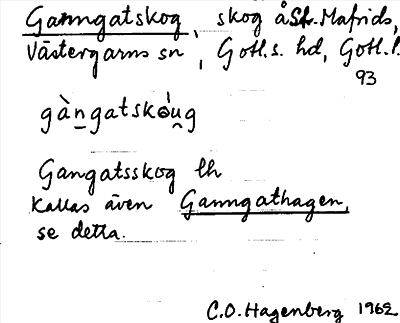 Ganngatskog, skog å St. Mafrids,
Västergarns sn, Gotl.s. hd, Gotl. l.
93
gàn̠gatskòu̯g
Gangatsskog lh
Kallas även Ganngathagen,
se detta.
C.O. Hagenberg 1962